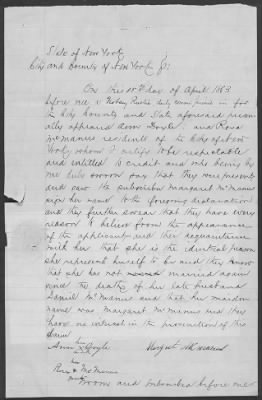 State of New York
City and County of New York ss
On this 10th day of April 1863
before me a Notary Public duly commissioned in for
the City County and State aforesaid person
ally appeared Ann Doyle and Rosa
McManus residents of the City of New
York whom I certify to be respectable
and intitled to credit and who being by
me duly sworn say that they were present
and saw the subscriber Margaret McManus
sign her name to the foregoing declaration
and they further swear that they have every
reason to believe from the appearance
of the applicant and their acquaintance
with her that she is the identical person
she represents himself to be and they know
that she has not married again
since the death of her late husband
Daniel McManus and that her maiden
name was Margaret McManus and they
have no interest in the prosecution of this
claim
Ann Doyle Margaret McManus
Rosa McManus
Sworn and subscribed before me